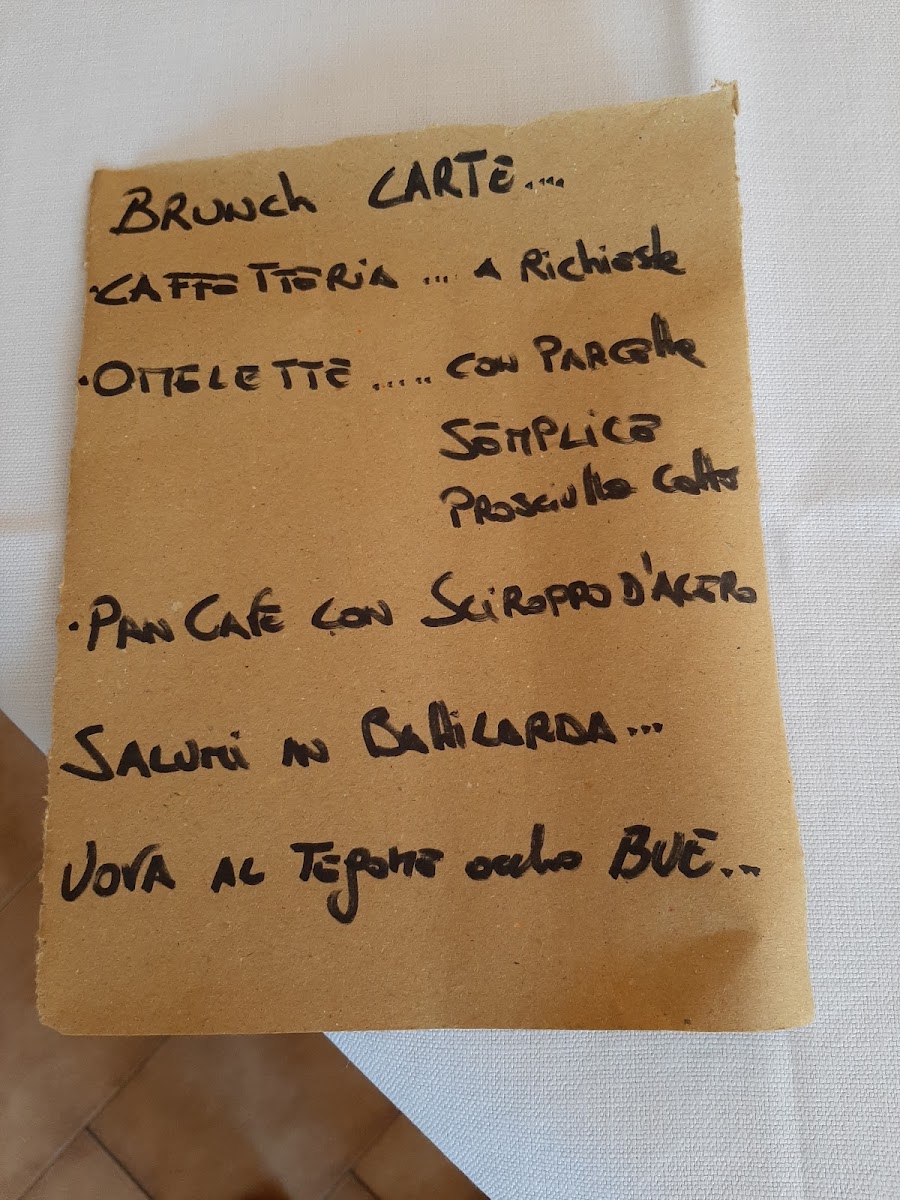 BRUNCh CARTE....
·CAFFETTERiA ... A RichiesTe
·OMELETTE ..... CON PARCETTe
SEMPLICE
PROSCiUTTO COTTO
·PAN CAFE CON SCiROPPO D'ACERO
SALUMi iN BATTiLARDA...
UOVA AL TEgAME occhio BUE...